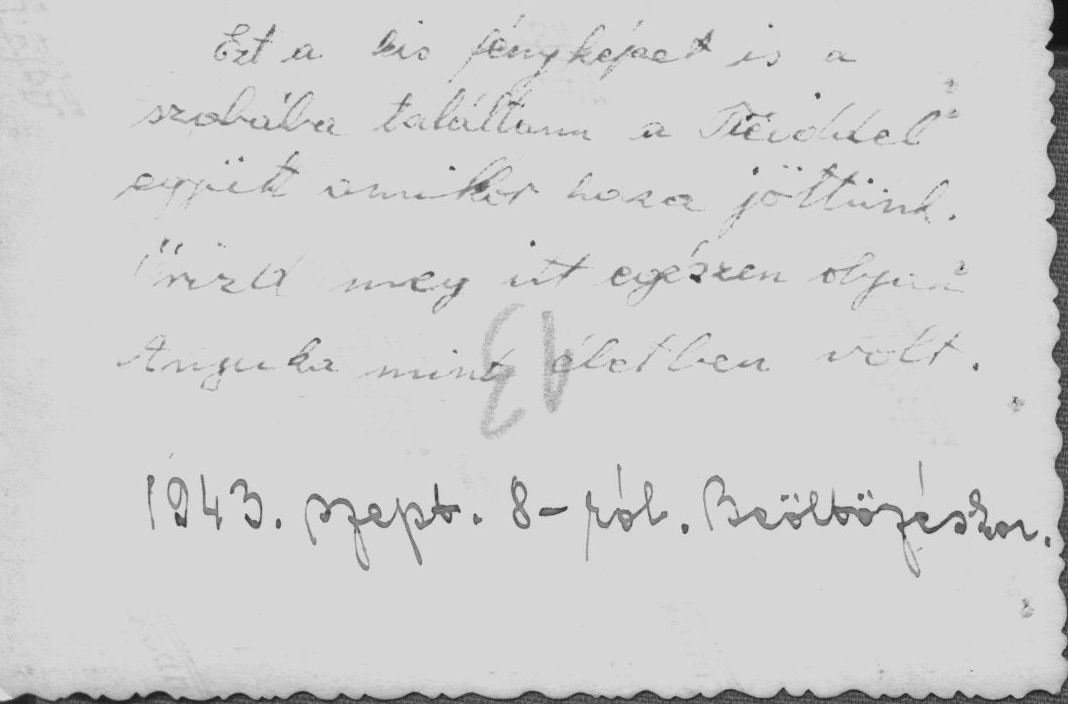 Ezt a kis fényképet is a
szobába találtam a Tieiddel
együtt amikor haza jöttünk.
Őrizd meg itt egészen olyan
Anyuka mint életben volt.
13
1943. szept. 8-ról. Beöltözéskor.